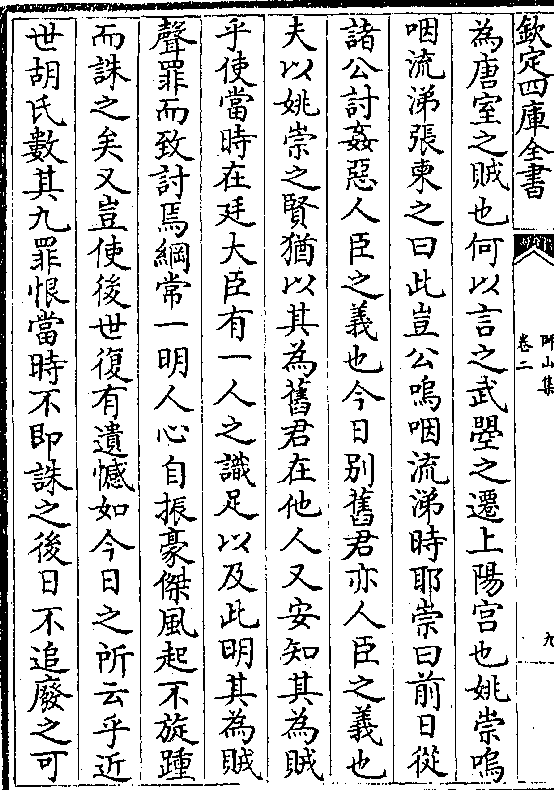 欽定四庫全書
師山集
卷二
九
為唐室之賊也何以言之武曌之遷上陽宫也姚崇嗚
咽流涕張柬之曰此豈公嗚咽流涕時耶崇曰前日從
諸公討姦惡人臣之義也今日别舊君亦人臣之義也
夫以姚崇之賢猶以其為舊君在他人又安知其為賊
乎使當時在廷大臣有一人之識足以及此明其為賊
聲罪而致討焉綱常一明人心自振豪傑風起不旋踵
而誅之矣又豈使後世復有遺憾如今日之所云乎近
世胡氏數其九罪恨當時不即誅之後日不追廢之可